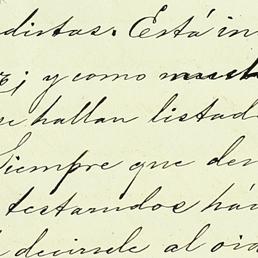 distas. Está in
; y como much
se hallan listad
Siempre que de
testarudos há
decirsele al oid